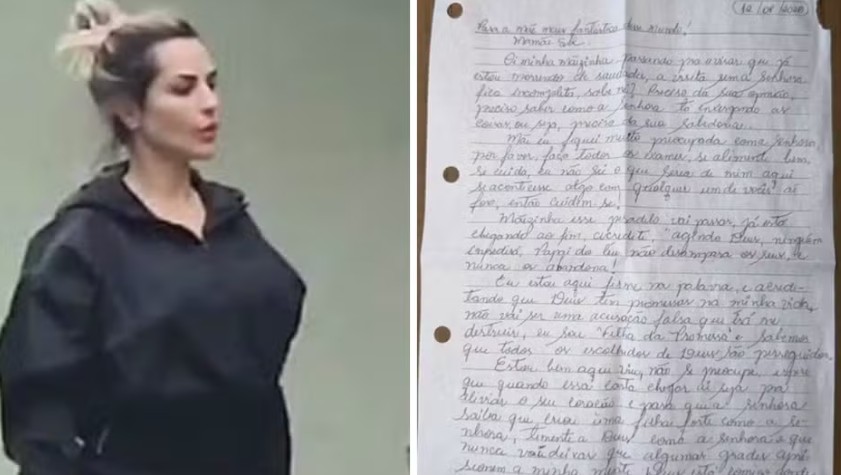 12/09/2024
Para a mãe mais fantástica desse mundo!
Mamãe
Oi minha mãezinha, passando pra avisar que já
estou morrendo de saudades, a visita sem a senhora
fica incompleta, sabe né? Preciso da sua opinião,
preciso saber como a senhora tá enxergando as
coisas, ou seja, preciso da sua sabedoria.
Mãe eu fiquei muito preocupada com a senhora,
por favor, faça todos os exames, se alimente bem,
se cuida, eu não sei o que seria de mim aqui
se acontecesse algo com qualquer um de vocês aí
fora, então cuidem-se!
Mãezinha esse pesadelo vai passar, já está
chegando ao fim, acredite, "agindo Deus, ninguém
impedirá, Papai do céu não desampara os seus, e
nunca os abandona!
Eu estou aqui firme na palavra, e acredi-
tando que Deus tem promessas na minha vida,
não vai ser uma acusação falsa que irá me
destruir, eu sou "Filha da Promessa e sabemos
que todos os escolhidos de Deus são perseguidos.
Estou bem aqui viu, não se preocupe, espero
que quando essa carta chegar aí seja pra
aliviar o seu coração e para que a senhora
saiba que criou uma filha forte como a se-
nhora, temente a Deus como a senhora e que
nunca vai deixar que algumas grades apri-
sionem a minha mente